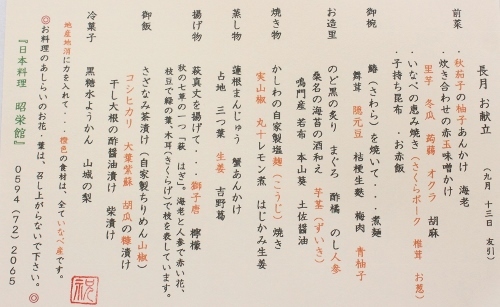 長月 お献立 (九月 十三日 友引)
前菜
・秋茄子の柚子あんかけ 海老
・炊き合わせの赤玉味噌かけ
里芋 冬瓜 蒟蒻 オクラ 胡麻
・いなべの恵み焼き(さくらポーク 椎茸 お葱)
・子持ち昆布 ・お赤飯
御椀
鰆(さわら)を焼いて・・・煮麺
舞茸 隠元豆 桔梗生麩 梅肉 青柚子
お造里
のど黒の炙り まぐろ 酢橘 のし人参
桑名の海苔の酒和え 芋茎(ずいき)
鳴門産 若布 本山葵 土佐醤油
焼き物
かしわの自家製塩麹(こうじ)焼き
実山椒 丸十レモン煮 はじかみ生姜
蒸し物
蓮根まんじゅう 蟹あんかけ
占地 三つ葉 生姜 吉野葛
揚げ物
萩真丈を揚げて・・獅子唐 檸檬
秋の七草の一つ「萩 はぎ」。海老と人参で赤い花、
枝豆で緑の葉、木耳(きくらげ)で枝を表しています。
御飯
さざなみ茶漬け(自家製ちりめん山椒)
コシヒカリ 大葉紫蘇 胡瓜の糠漬け
干し大根の酢醤油漬け 柴漬け
冷菓子
黒糖水ようかん 山城の梨
地産地消に力を入れて・・・橙色の食材は、全ていなべ産です。
◎お料理のあしらいのお花・葉は、召し上がらないで下さい。◎
『日本料理 昭栄館』 0594(72)2065
祝